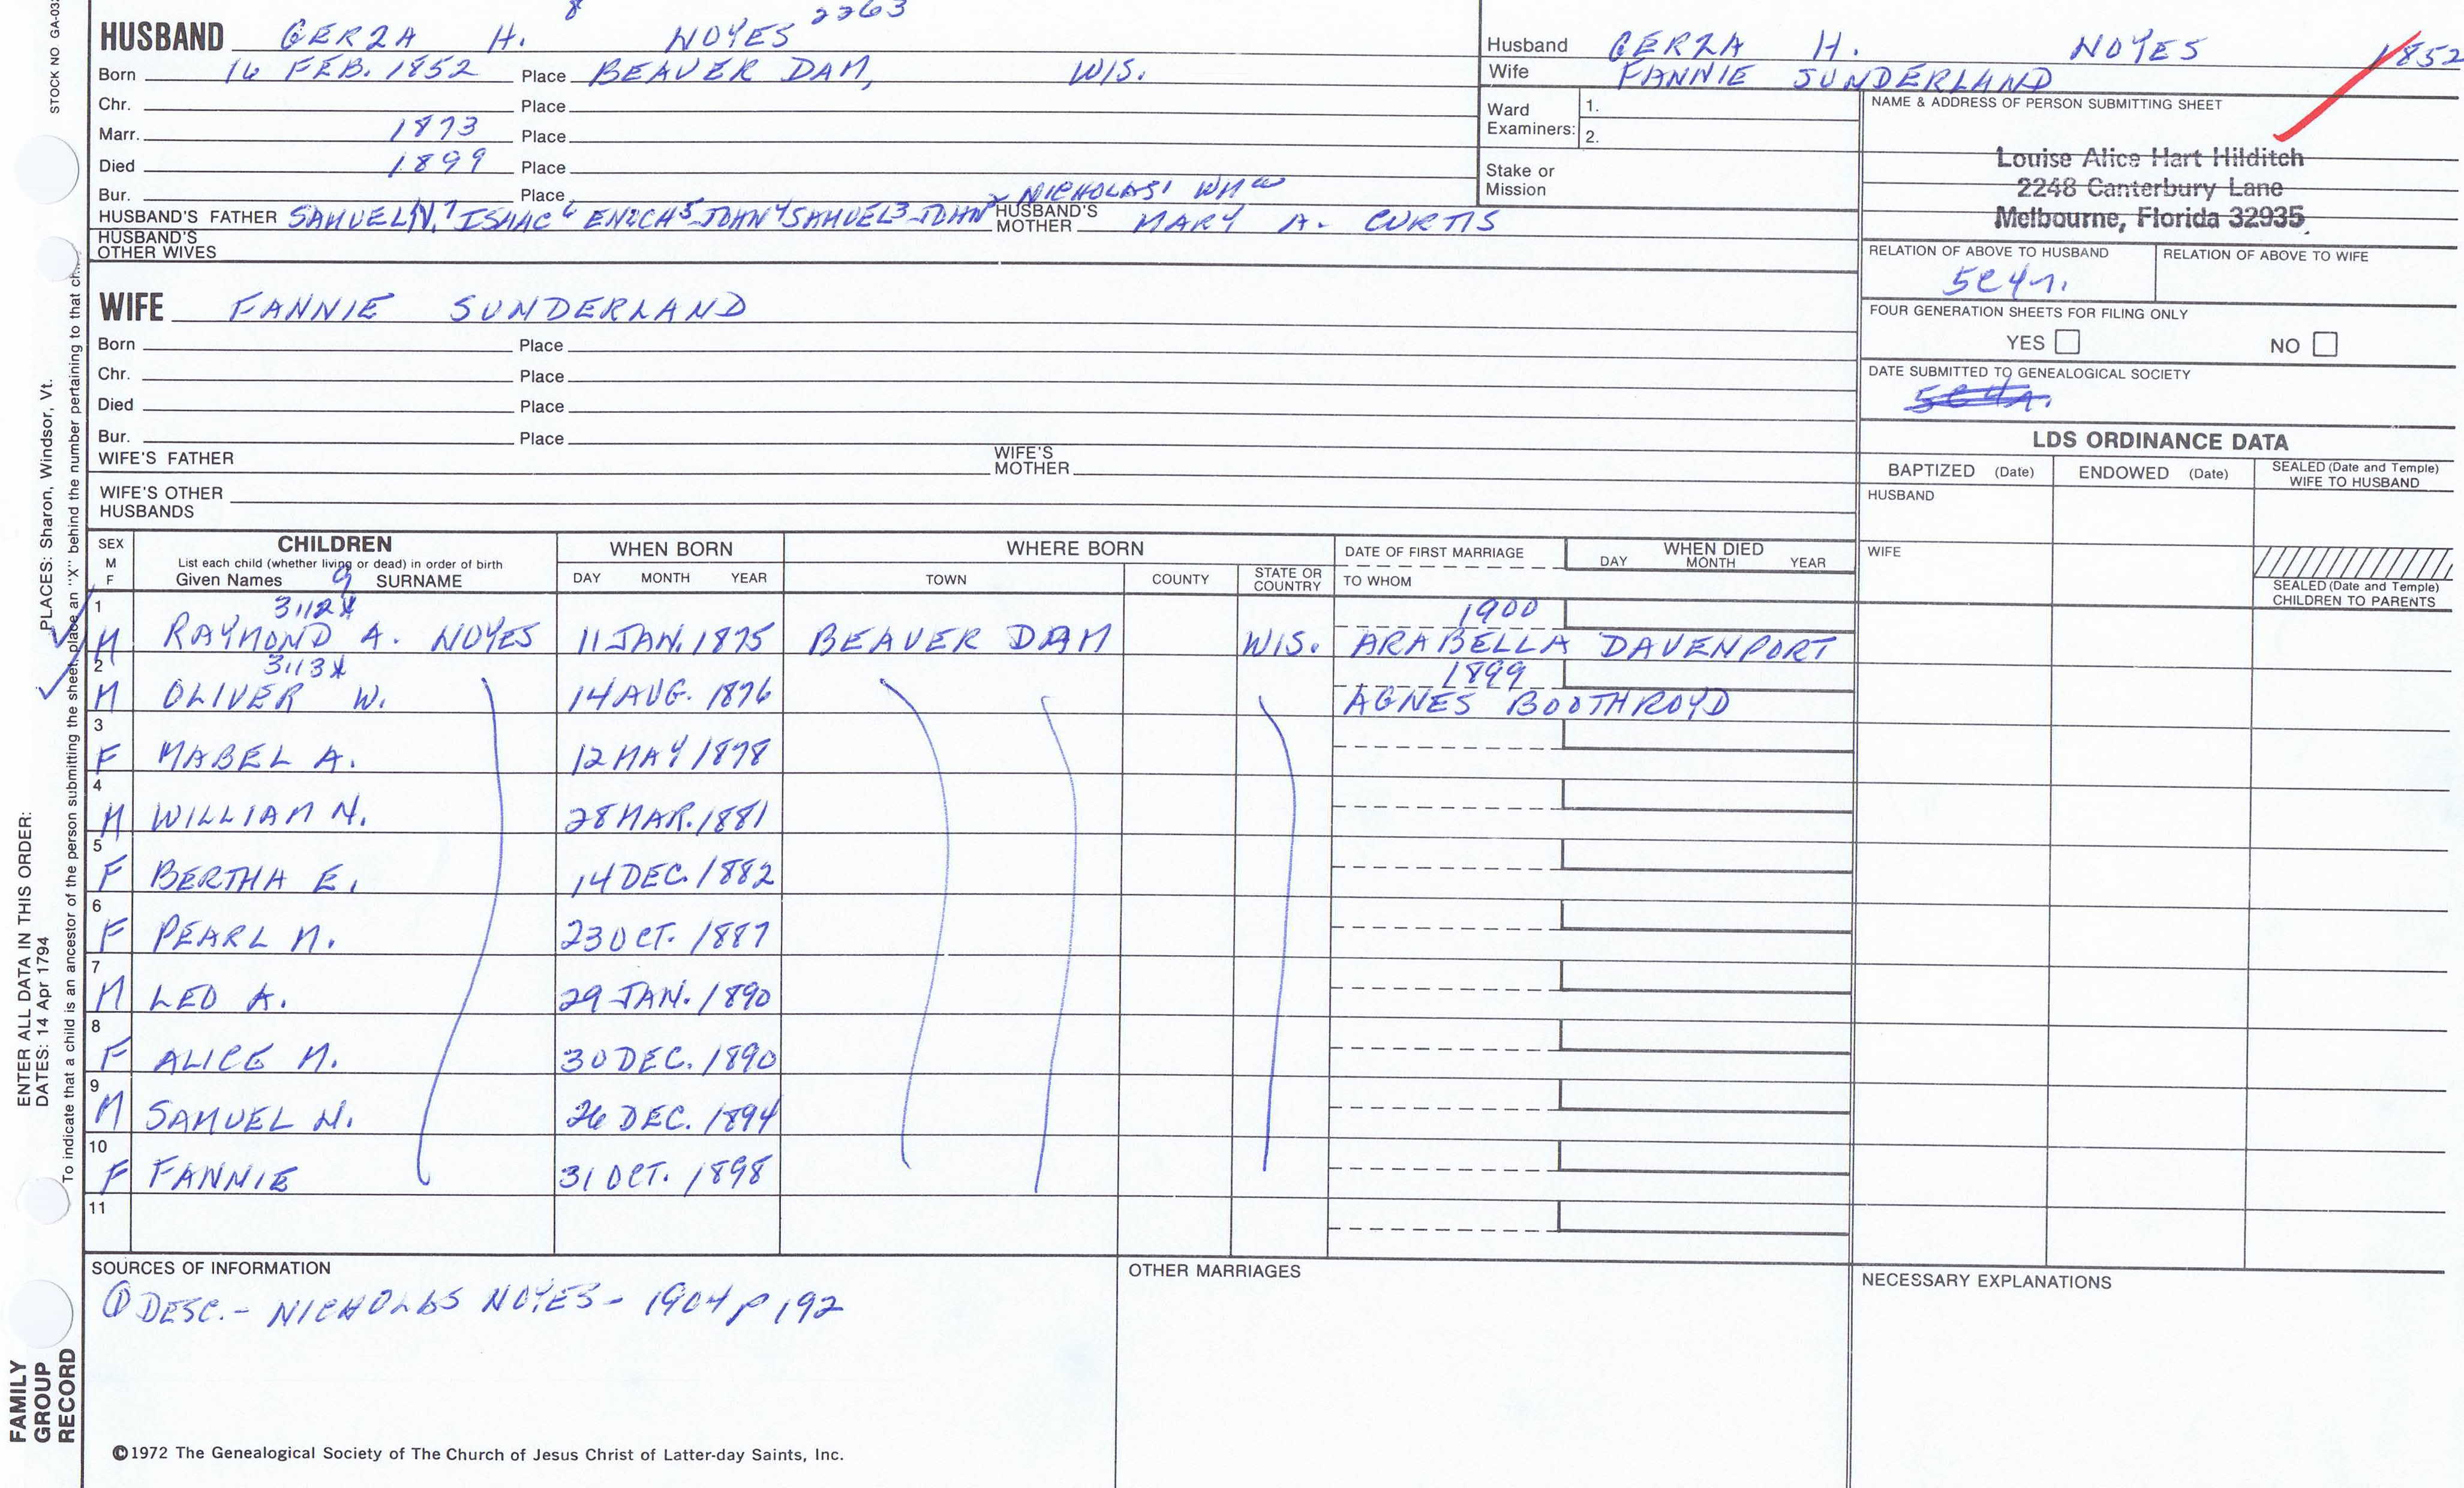 8 2263
HUSBAND GERZA H. NOYES
Born 16 FEB. 1852 Place BEAVER DAM, WIS.
Chr. Place
Marr. 1873 Place
Died 1899 Place
Bur. Place
NICHOLAS1 WM
HUSBAND'S FATHER SAMUEL N.7 ISAAC6 ENOCH5 JOHN4 SAMUEL3 JOHN2 HUSBAND'S MOTHER MARY A. CURTIS
HUSBAND'S OTHER WIVES
Husband GERZA H. NOYES 1852
Wife FANNIE SUNDERLAND
Ward Examiners: 1.
2.
Stake or Mission
NAME & ADDRESS OF PERSON SUBMITTING SHEET
Louise Alice Hart Hilditch
2248 Canterbury Lane
Melbourne, Florida 32935
RELATION OF ABOVE TO HUSBAND RELATION OF ABOVE TO WIFE
5C4r.
FOUR GENERATION SHEETS FOR FILING ONLY
YES NO
DATE SUBMITTED TO GENEALOGICAL SOCIETY
WIFE FANNIE SUNDERLAND
Born Place
Chr. Place
Died Place
Bur. Place
WIFE'S FATHER WIFE'S MOTHER
WIFE'S OTHER HUSBANDS
LDS ORDINANCE DATA
BAPTIZED (Date) ENDOWED (Date) SEALED (Date and Temple) WIFE TO HUSBAND
HUSBAND
WIFE
SEALED (Date and Temple) CHILDREN TO PARENTS
SEX M F CHILDREN WHEN BORN WHERE BORN DATE OF FIRST MARRIAGE WHEN DIED
List each child (whether living or dead) in order of birth DAY MONTH YEAR TOWN COUNTY STATE OR COUNTRY TO WHOM DAY MONTH YEAR
Given Names 9 SURNAME
1 3112 1900
M RAYMOND A. NOYES 11 JAN. 1875 BEAVER DAM WIS. ARABELLA DAVENPORT
2 3113 1899
M OLIVER W. 14 AUG. 1876 AGNES BOOTHROYD
3
F MABEL A. 12 MAY 1878
4
M WILLIAM N. 28 MAR. 1881
5
F BERTHA E. 14 DEC. 1882
6
F PEARL M. 23 OCT. 1887
7
M LEO A. 29 JAN. 1890
8
F ALICE M. 30 DEC. 1890
9
M SAMUEL N. 26 DEC. 1894
10
F FANNIE 31 OCT. 1898
11
SOURCES OF INFORMATION
① DESC. - NICHOLAS NOYES - 1904 p 192
OTHER MARRIAGES
NECESSARY EXPLANATIONS
©1972 The Genealogical Society of The Church of Jesus Christ of Latter-day Saints, Inc.
STOCK NO GA-03
PLACES: Sharon, Windsor, Vt.
To indicate that a child is an ancestor of the person submitting the sheet, place an "X" behind the number pertaining to that
ENTER ALL DATA IN THIS ORDER:
DATES: 14 Apr 1794
FAMILY
GROUP
RECORD